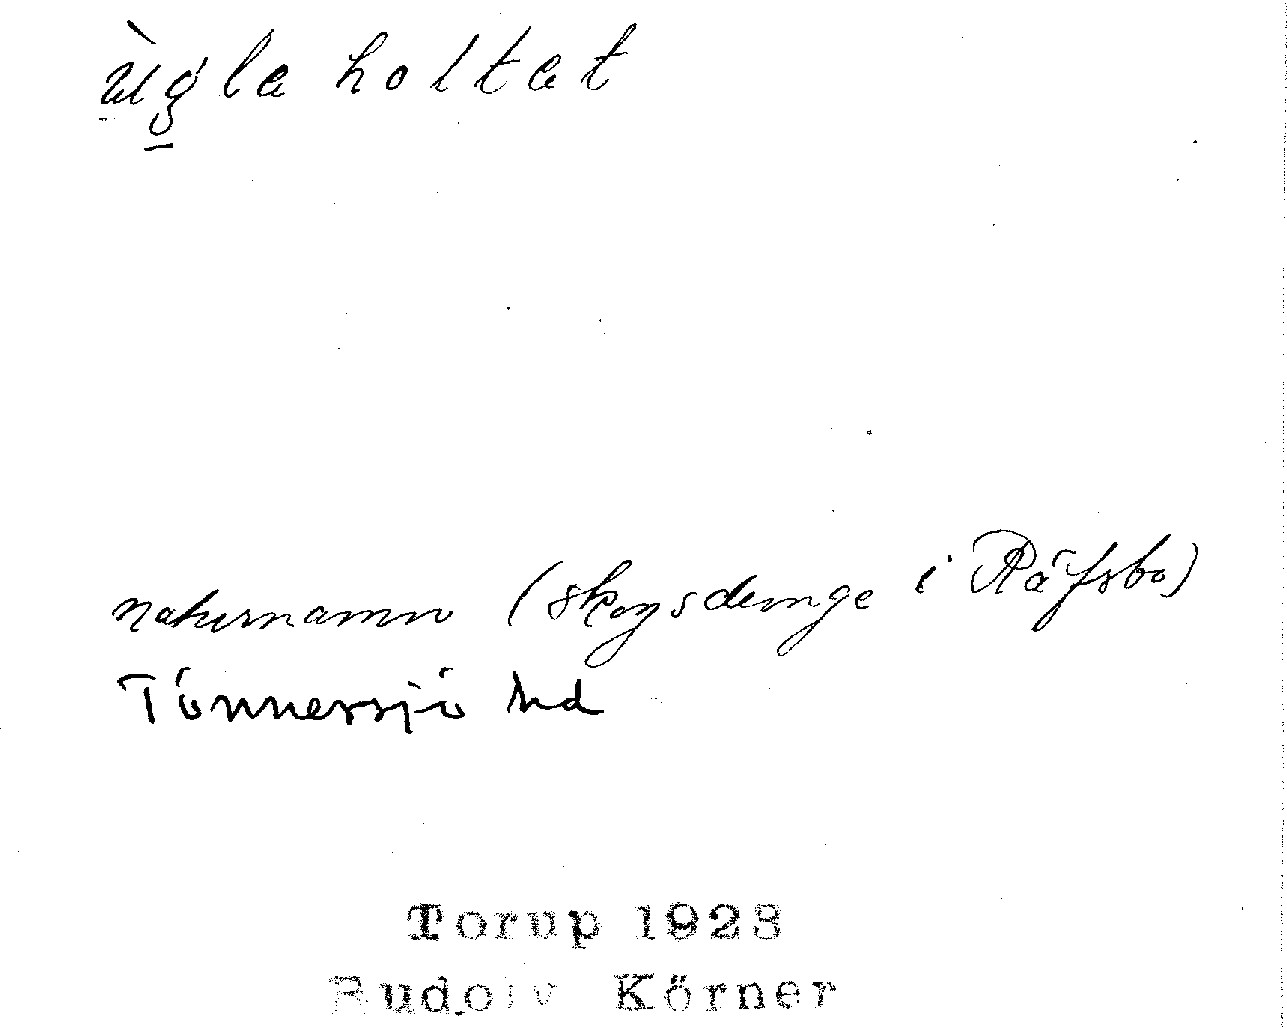 ùgla holtat
naturnamn (skogsdunge i Räfsbo)
Tönnersjö hd
Torup 1923
Rudolv Körner